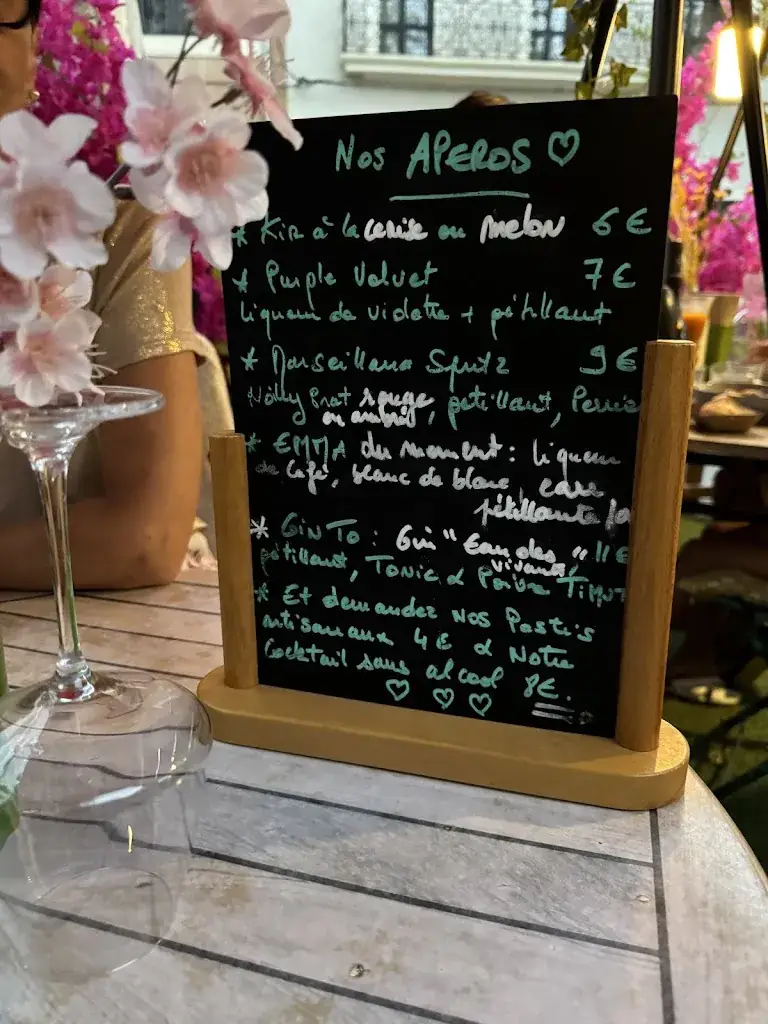 Nos APEROS ♡
* Kir à la cerise ou melon 6 €
* Purple Velvet 7 €
Liqueur de violette + pétillant
* Marseillana Spritz 9 €
Noilly Prat rouge
ou ambré, pétillant, Perrie
* EMMA du moment : liqueur
de café, blanc de blanc,
pétillante
* GIN TO : Gin "Eau des 11 €
vivants",
pétillant, Tonic & Poivre TIMUT
* Et demandez nos Pastis
artisanaux 4 € & Notre
Cocktail sans alcool 8€.
♡ ♡ ♡